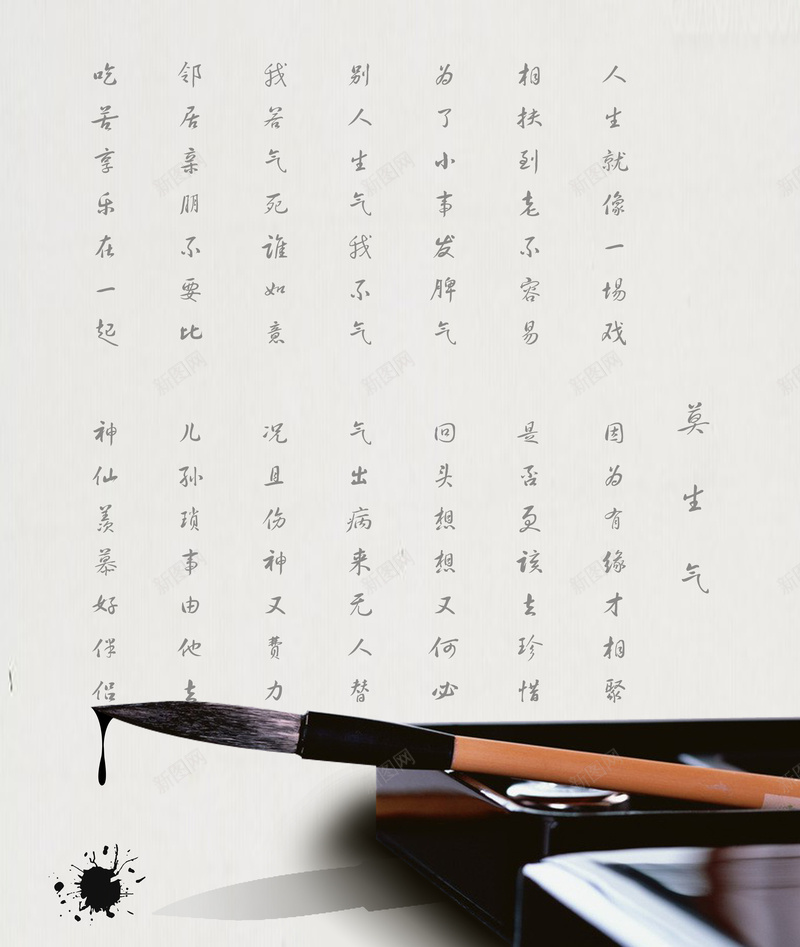 莫生气
人生就像一场戏 因为有缘才相聚
相扶到老不容易 是否更该去珍惜
为了小事发脾气 回头想想又何必
别人生气我不气 气出病来无人替
我若气死谁如意 况且伤神又费力
邻居亲朋不要比 儿孙琐事由他去
吃苦享乐在一起 神仙羡慕好伴侣
新图网